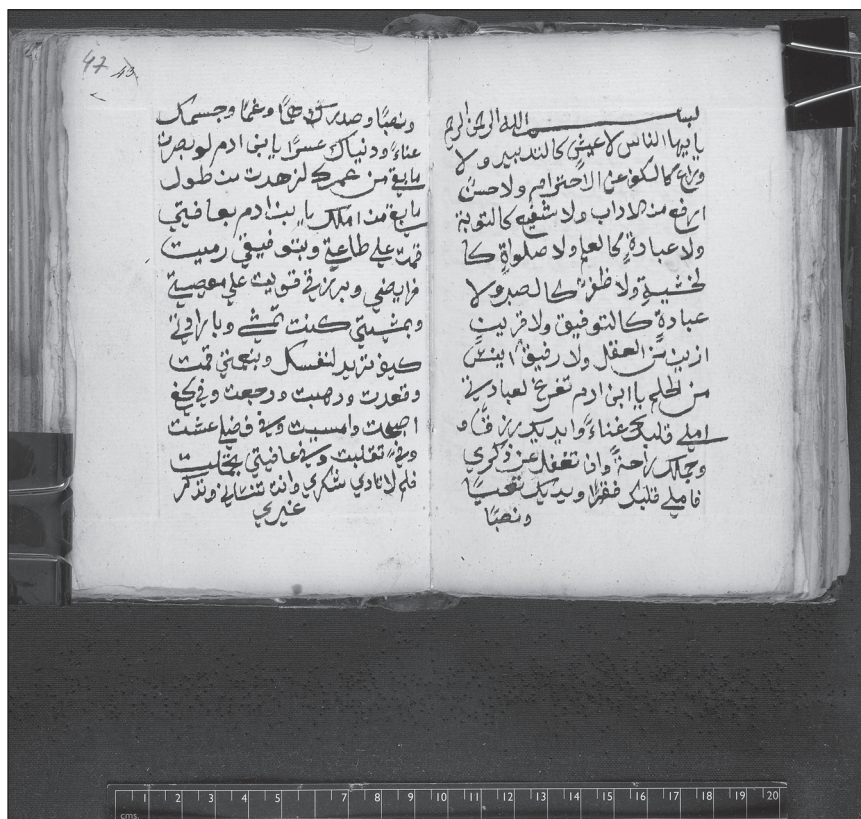 بسم الله الرحمن الرحيم
يا يها الناس لا عيش كالتدبير ولا
ورع كالكف عن الاحترام ولا حسن
ارفع من الاداب ولا شفيع كالتوبة
ولا عبادة كالعلم ولا صلواة كا
لخشية ولا ظفر كالصبر ولا
عبادة كالتوفيق ولا قرين
ازين من العقل ولا رفيق اينس
من الحلم يا ابن ادم تفرغ لعبادتي
املي قلبك غناء وايديك رزقا و
وجملك راحة وان تغفل عن ذكري
فاملي قلبك فقرا ويديك تعبا
ونصبا
ونصبا وصدرك هما وغما وجسمك
عناء ودنياك عسرا يا بني ادم لو بصرت
ما بقي من عمرك لزهدت من طول
ما بقي من املك يا بن ادم بعافيتي
قمت علي طاعتي وبتوفيقي رميت
فرايضي وبرزقي قويت علي معصيتي
وبمشيتي كنت تمشي وبارادتي
كيف تريد لنفسك وبنعمتي قمت
وقعدت ودهبت ورجعت وفي كنفي
اصبحت وامسيت وفي فضلي عشت
وفي تقلبت وفي عافيتي تجملت
فلم لا تادي شكري وانت تنساني وتذكر
غيري
47
43
cms. 1 2 3 4 5 7 8 9 10 11 12 13 14 15 16 17 18 19 20